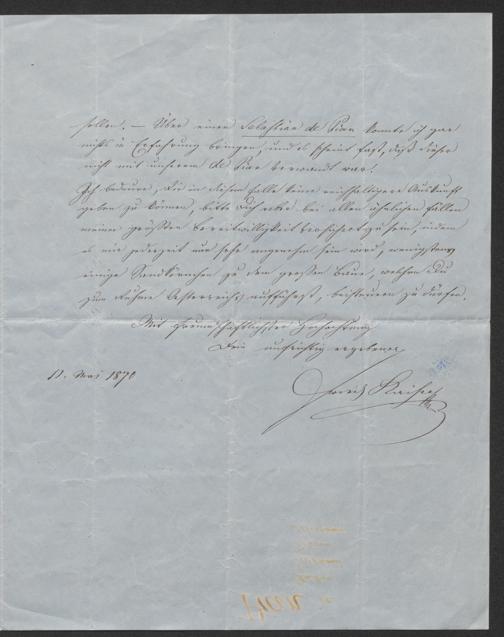 sollen. — Über einen Sebastian de Pian konnte ich gar
nichts in Erfahrung bringen, und es scheint fast, daß dieser
nicht mit unserem de Pian verwandt war!
Ich bedaure, Dir in diesem Falle keine reichhaltigere Auskunft
geben zu können, bitte Dich aber bei allen ähnlichen Fällen
meiner größten Bereitwilligkeit versichert zu sein, indem
es mir jederzeit nur sehr angenehm sein wird, wenigstens
einige Sandkörnchen zu dem großen Baue, welchen Du
zum Ruhme Oesterreichs aufführst, beisteuern zu dürfen.
Mit freundschaftlichster Hochachtung
Dein aufrichtig ergebener
11. Mai 1870
Kaiser